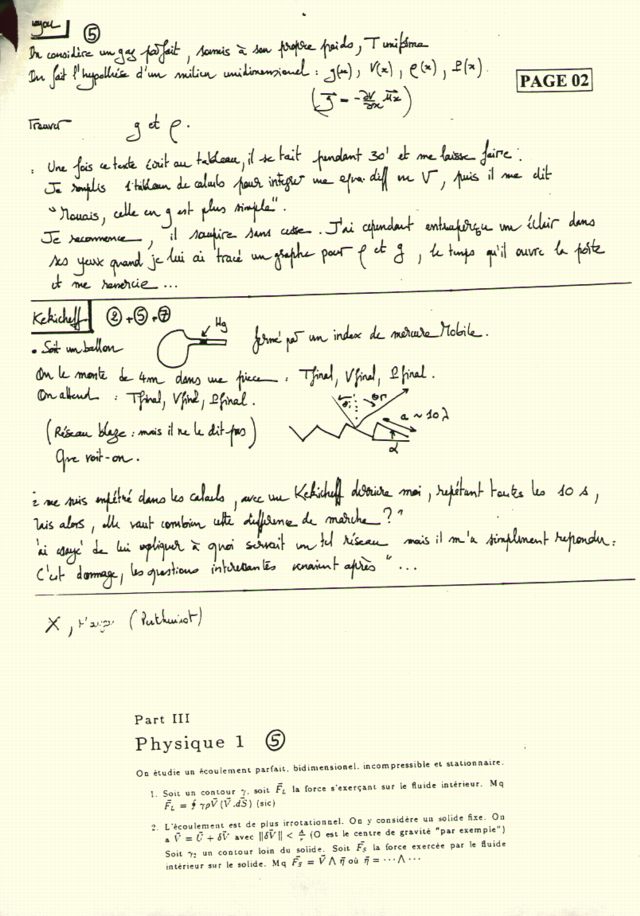 ⑤
On considère un gaz parfait, soumis à son propre poids, T uniforme
On fait l'hypothèse d'un milieu unidimensionel : g(x), V(x), ρ(x), P(x).
PAGE 02
(g⃗ = -∂V/∂x u⃗x)
Trouver g et ρ.
Une fois ce texte écrit au tableau, il se tait pendant 30' et me laisse faire.
Je remplis 1 tableau de calculs pour intégrer une équa diff en V, puis il me dit
"Mouais, celle en g est plus simple".
Je recommence, il soupire sans cesse. J'ai cependant entraperçu un éclair dans
ses yeux quand je lui ai tracé un graphe pour ρ et g, le temps qu'il ouvre la porte
et me remercie ...
Kekicheff ② + ⑤ + ⑦
Hg
• Soit un ballon fermé par un index de mercure Mobile.
On le monte de 4m dans une pièce : Tfinal, Vfinal, Pfinal.
On attend : Tfinal, Vfinal, Pfinal.
(Réseau blazé : mais il ne le dit pas)
a ~ 10 λ
α
Que voit-on.
me suis empêtré dans les calculs, avec un Kekicheff derrière moi, répétant toutes les 10 s,
alors, elle vaut combien cette différence de marche ?"
'ai essayé de lui expliquer à quoi servait un tel réseau mais il m'a simplement répondu :
C'est dommage, les questions intéressantes venaient après" ...
X,
Part III
Physique 1 ⑤
On étudie un écoulement parfait, bidimensionel, incompressible et stationnaire.
1. Soit un contour γ, soit F⃗L la force s'exerçant sur le fluide intérieur. Mq
F⃗L = ∮ γρV⃗(V⃗.dS⃗) (sic)
2. L'écoulement est de plus irrotationnel. On y considère un solide fixe. On
a V⃗ = U⃗ + δV⃗ avec ||δV⃗|| < A/r (O est le centre de gravité "par exemple")
Soit γ₂ un contour loin du solide. Soit F⃗S la force exercée par le fluide
intérieur sur le solide. Mq F⃗S = V⃗ ∧ η⃗ où η⃗ = ··· ∧ ···